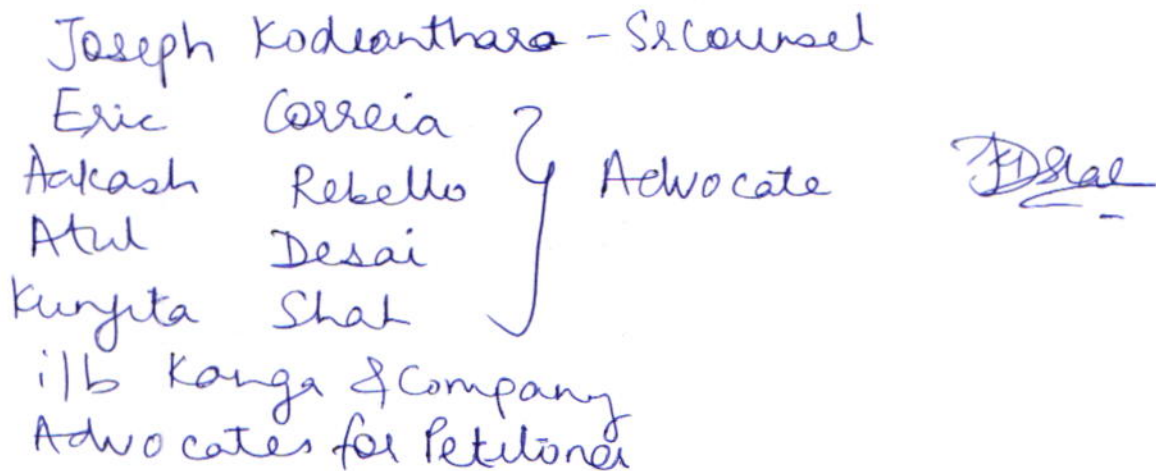 Joseph Kodianthara - Sr Counsel
Eric Correia
Aakash Rebello
Atul Desai
Advocate
Kunjita Shah
i/b Kanga & Company
Advocates for Petitioner